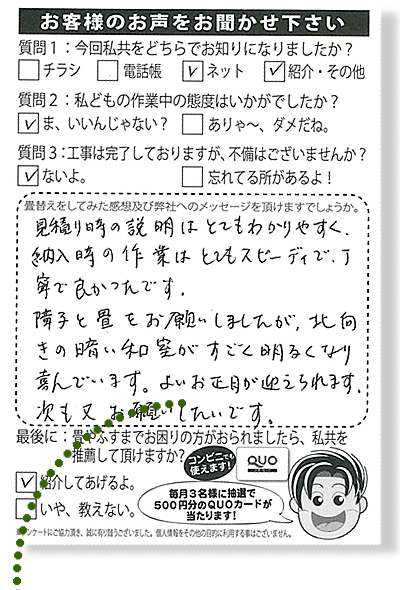 お客様のお声をお聞かせ下さい
質問1：今回私共をどちらでお知りになりましたか？
チラシ 電話帳 ✓ネット ✓紹介・その他
質問2：私どもの作業中の態度はいかがでしたか？
✓ま、いいんじゃない？ ありゃ〜、ダメだね。
質問3：工事は完了しておりますが、不備はございませんか？
✓ないよ。 忘れてる所があるよ！
畳替えをしてみた感想及び弊社へのメッセージを頂けますでしょうか。
見積り時の説明はとてもわかりやすく、
納入時の作業はとてもスピーディで、丁
寧で良かったです。
障子と畳をお願いしましたが、北向
きの暗い和室がすごく明るくなり
喜んでいます。よいお正月が迎えられます。
次も又お願いしたいです。
最後に：畳やふすまでお困りの方がおられましたら、私共を
推薦して頂けますか？
コンビニでも
使えます！
QUO
✓紹介してあげるよ。
いや、教えない。
毎月3名様に抽選で
500円分のQUOカードが
当たります！
アンケートにご協力頂き、誠に有り難うございました。個人情報をその他の目的に利用する事はございません。